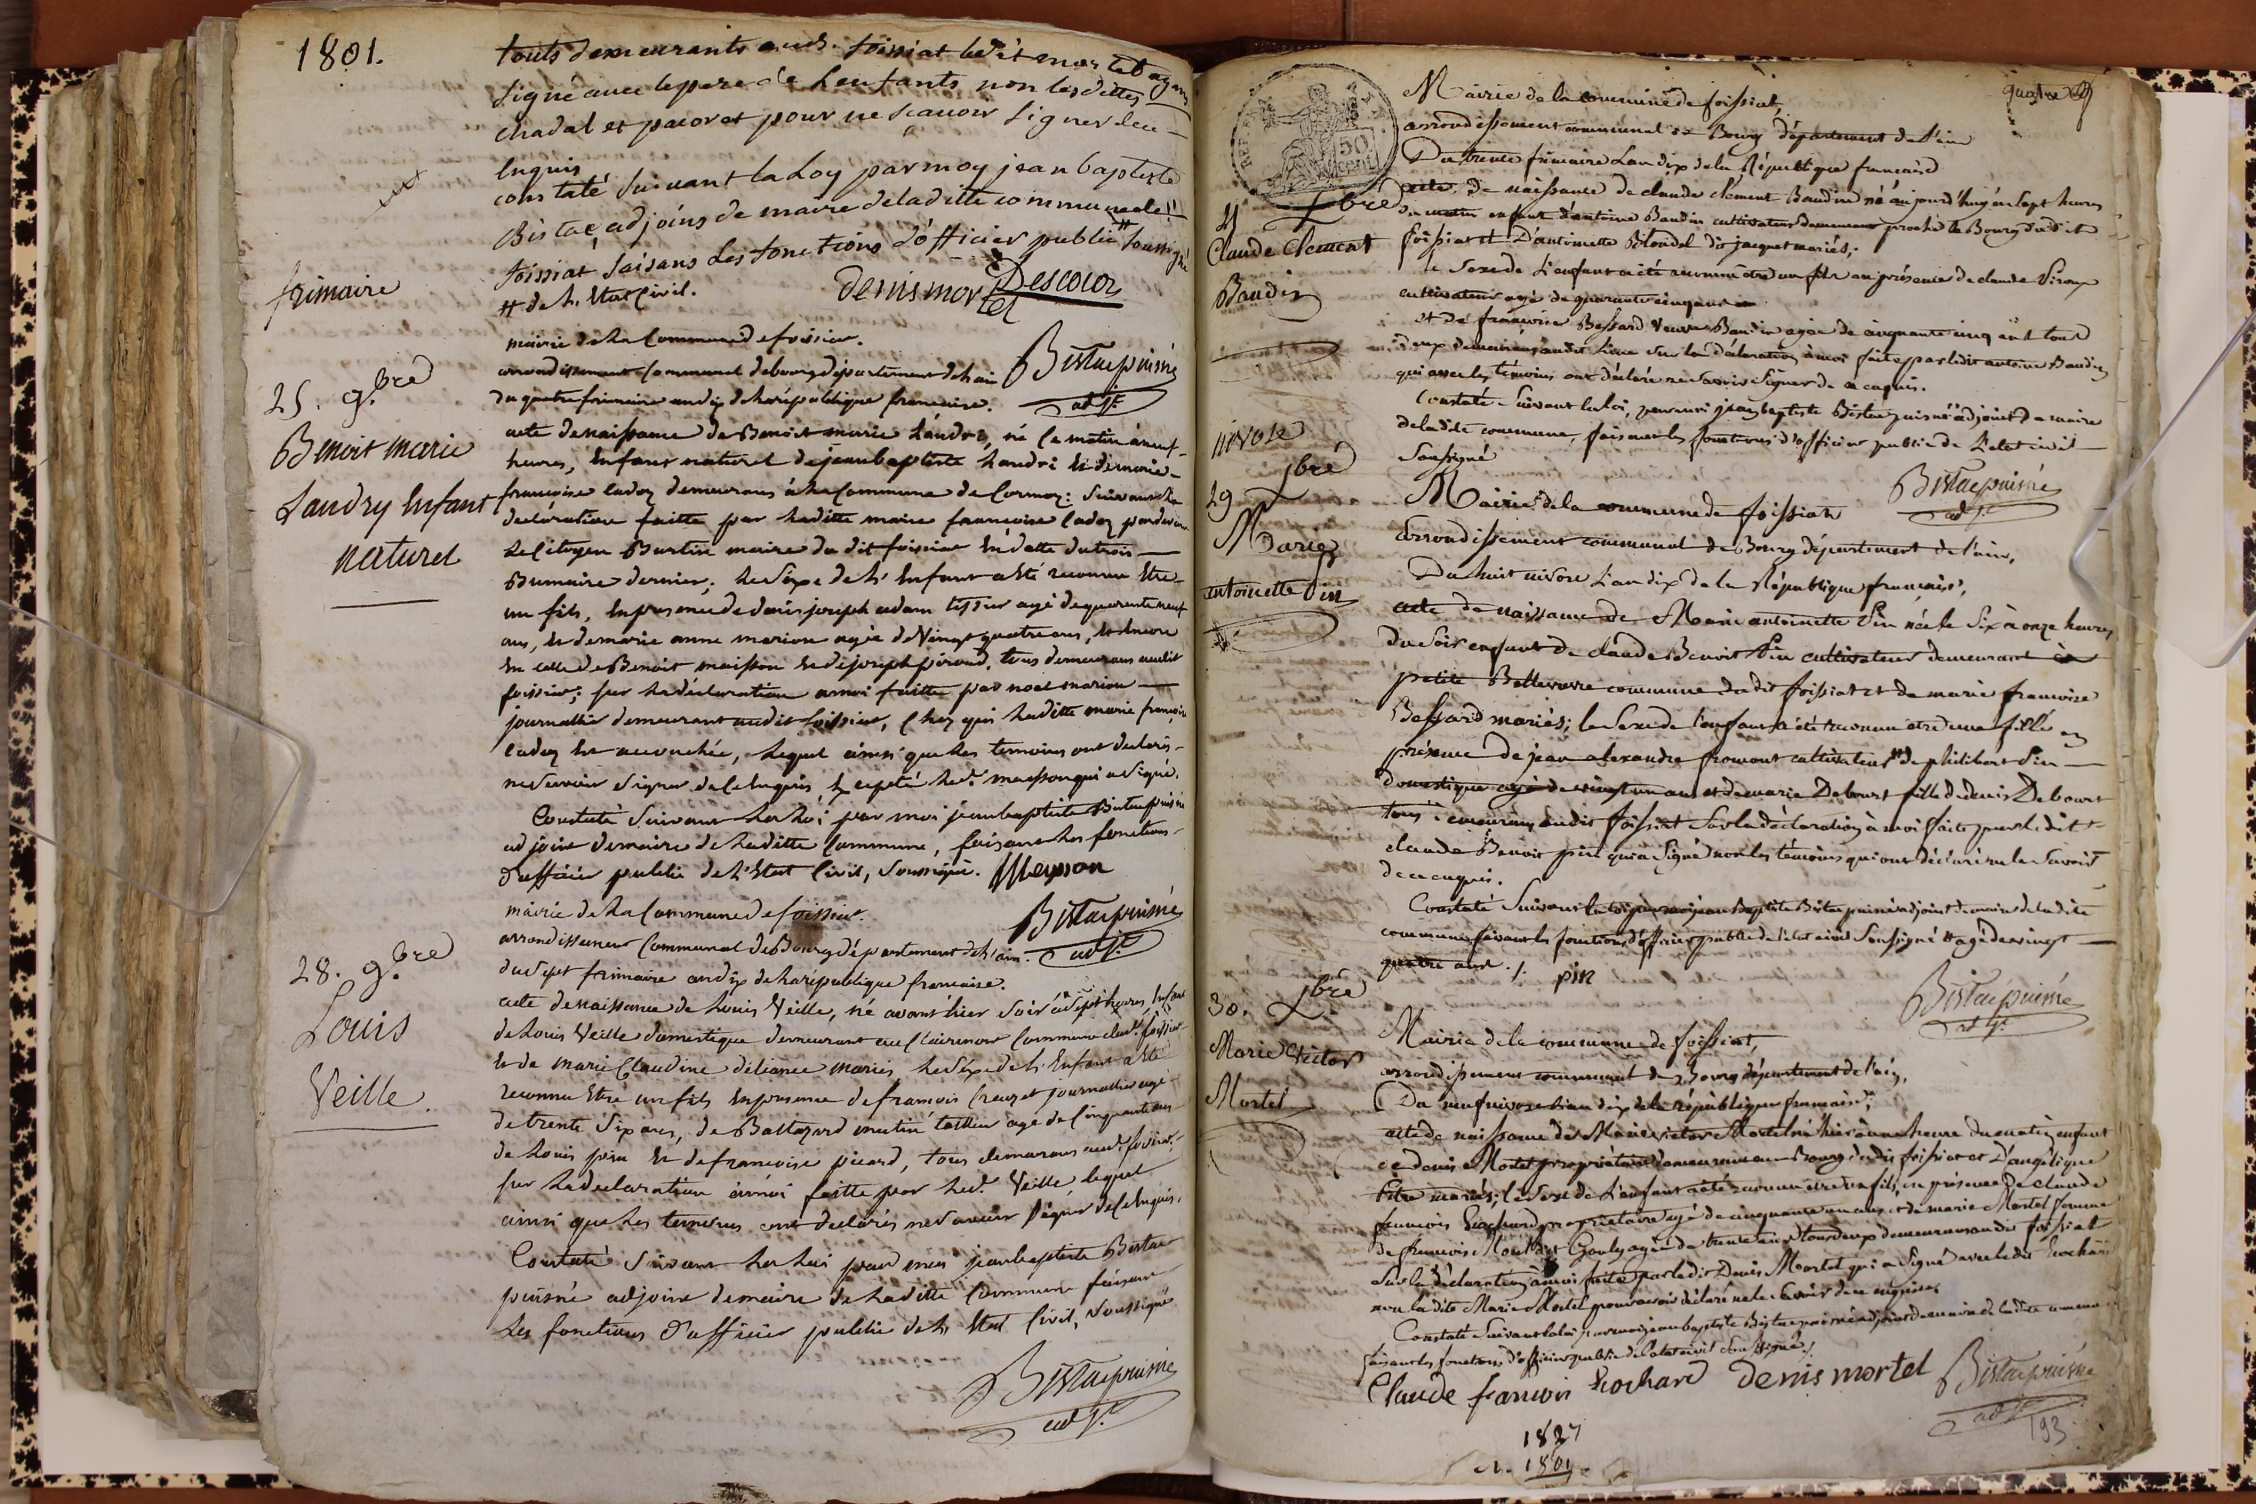 1801.
touts demeurants aud. foissiat ledit mortel ayans
signé avec le pere de l'enfants non les dittes
chadal et pavoret pour ne scavoir signer de ce
Inquis
constaté suivant la Loy par moy jean baptiste
Bistac adjoins de maire de la ditte commune
foissiat faisans les fonctions d'officier public # soussigné
# de l. Etat Civil.
denis mortel
Descour
frimaire
mairie de la Commune de foissiat.
arrondissement Communal de bourg département de l'ain
Bistac puisné
adjt.
25. 9.bre
Benoit marie
Landry Enfant
naturel
du quatre frimaire an dix de la république francaise.
acte de naissance de Benoit marie Landri, né le matin à neuf
heures, Enfant naturel de jean baptiste Landri Et de marie
francoise cadoz demeurans à la Commune de Cormoz: Suivant la
declaration faitte par laditte marie francoise cadoz pardevant
Le Citoyen Burtin maire du dit foissiat En datte du trois
Brumaire dernier; Le Séxe de l'Enfant a Eté reconnu Etre
un fils, En presence de denis joseph adam tissier agé de quarente neuf
ans, Et de marie anne marion agée de Vingt quatre ans, Et Encore
En celle de Benoit maisson Et de joseph piroud, tous demeurans audit
foissiat; sur la déclaration a moi faitte par noel marion
journallier demeurant audit foissiat, Chez qui laditte marie francoise
cadoz Est accouchée, lequel ainsi que les temoins ont declarés
ne Savoir Signer de Ce Enquis, Excepté led. maisson qui a Signé.
Constaté Suivant la Loi par moi jean baptiste Bistac puisné
adjoint de maire de laditte Commune, faisant les fonctions
d'officier public de l'Etat Civil, Soussigné. Meysson
Bistac puisné
adjt.
28. 9.bre
Louis
Veille.
mairie de la Commune de foissiat.
arrondissement Communal de Bourg département de l'ain.
du Sept frimaire an dix de la république francaise.
acte de naissance de Louis Veille, né avant hier Soir à Sept heures, Enfant
de Louis Veille domestique demeurant au Clairmont Commune dud. foissiat
Et de marie Claudine déliance mariés, Le Séxe de l'Enfant a Eté
reconnu Etre un fils En presence de francois Creuzet journallier agé
de trente Six ans, de Baltazard mutin tailleur agé de Cinquante ans
de Louis pin Et de francoise picard, tous demeurans aud. foissiat,
sur la declaration à moi faitte par led. Veille lequel
ainsi que les temoins ont declarés ne Savoir Signer de Ce Enquis.
Constaté Suivant la Loi par moi jean baptiste Bistac
puisné adjoint de maire de laditte Commune faisant
Les fonctions d'officier public de l. Etat Civil, Soussigné
Bistac puisné
adjt.
quatre
50 cent
Mairie de la commune de foissiat,
arrondissement communal de Bourg département de l'ain
Du trente frimaire L'an dix de la République francaise
21 Xbre
Claude Clement
Baudin
acte de naissance de claude clement Baudin né aujourd'huy à sept heures
du matin enfant d'antoine Baudin cultivateur demeurant proche le Bourg dudit
foissiat et D'antoinette Blondel dit jacquet mariés;
le Sexe de L'enfant a été reconnu etre un fils en présence de claude Piroux
cultivateur agé de quarante cinq ans
et de francoise Bessard Veuve Baudin agée de cinquante cinq ans tous
deux demeurans audit Lieu sur la déclaration à moi faite par ledit antoine Baudin
qui avec les témoins ont déclaré ne Savoir Signer de ce enquis.
Constaté Suivant la loi, par moi jean baptiste Bistac puisné adjoint de maire
de ladite commune, faisant les fonctions d'officier public de L'etat civil
Soussigné
Bistac puisné
adjt.
nivose
Xbre
29
Marie
antoinette Pin
Mairie de la commune de foissiat
arrondissement communal de Bourg département de l'ain,
Du huit nivose L'an dix de la République francaise,
acte de naissance de Marie antoinette Pin née le Six à onze heures
du Soir enfant de claude Benoit Pin cultivateur demeurant à
petite Bellevavre commune dudit foissiat et de marie francoise
Bessard mariés; le Sexe de L'enfant a été reconnu etre une fille en
présence de jean alexandre fromont cultivateur # de philibert Pin
domestique agé de vingt un ans et de marie Debourt fille de denis Debourt
tous demeurans audit foissiat Sur la déclaration à moi faite par le dit
claude Benoit pin qui a Signé non les témoins qui ont déclaré ne le Savoir
de ce enquis.
Constaté Suivant la loi par moi jean Baptiste Bistac puisné adjoint de maire de ladite
commune faisant les fonctions d'officier public de l'etat civil Soussigné # agé de vingt
quatre ans ./. pin
Bistac puisné
adjt.
30. Xbre
Marie Victor
Mortel
Mairie de la commune de foissiat,
arrondissement communal de Bourg département de l'ain,
Du neuf nivose L'an dix de la république francaise,
acte de naissance de Marie victor Mortel né hier à une heure du matin enfant
de denis Mortel propriétaire demeurant au Bourg dudit foissiat et D'angélique
mariés; le Sexe de L'enfant a été reconnu etre un fils, en présence de claude
francois Rochard propriétaire agé de cinquante un ans et de marie Mortel femme
de francois agée de trente ans tous deux demeurans audit foissiat
Sur la déclaration à moi faite par ledit Denis Mortel qui a Signé avec ledit Rochard
non ladite Marie Mortel pour avoir déclaré ne le Savoir de ce enquise
Constaté Suivant la loi par moi jean baptiste Bistac puisné adjoint de maire de ladite commune
faisant les fonctions d'officier public de l'etat civil Soussigné ./.
Claude francois Rochard denis mortel Bistac puisné
adjt.
193
1827
1801